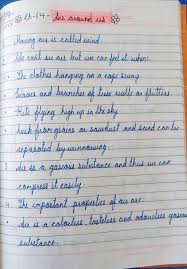 Ch-14- Air around us
Moving air is called wind.
We can't see air but we can feel it when:
The clothes hanging on a rope swing
Leaves and branches of trees swirls or flutters.
Kite flying high up in the sky.
Husk from grains or sawdust and sand can be
separated by winnowing.
Air is a gaseous substance and thus we can
compress it easily.
The important properties of air are:
Air is a colourless, tasteless and odourless gaseous
substance.